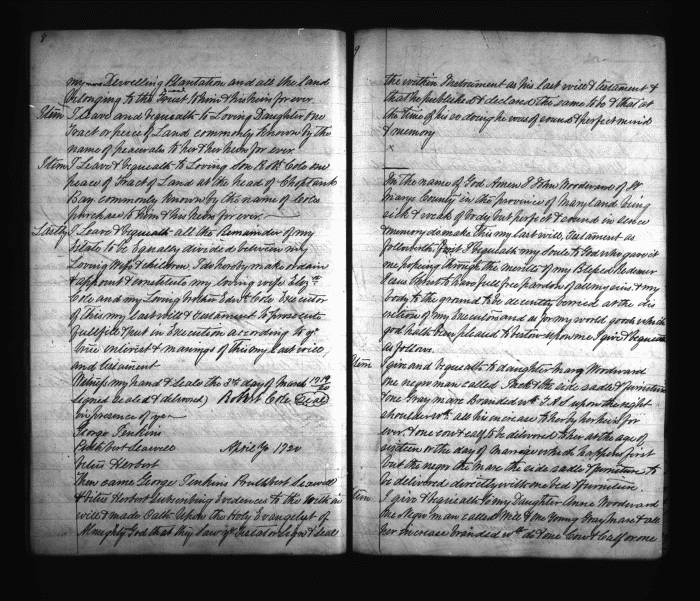 8
my now Dwelling Plantation and all the Land
belonging to the Forest to him & his heirs for ever
Item I Leave and bequeath to Loving Daughter one
Tract or peice of Land commonly known by the
name of to her & her heirs for ever
Item I Leave & bequeath to Loving son Robt. Cole one
peace of Tract of Land at the head of Choptank
Bay commonly known by the name of Coles
purchase to him & his heirs for ever
Lastly I Leave & bequeath all the Remainder of my
Estate to be Equally divided between my
Loving Wife & children, I do hereby make ordain
& appoint & constitute my loving wife Elizth
Cole and my Loving brother Edwd. Cole Executor
of This my last will & testament to prosecute
fullfill & put in Execution according to ye
true enterest & meanings of This my Last will
and testament
Witness my hand & Seale the 3rd day of March 1719/20
signed sealed & delivered) Robert Cole (Seal)
in presence of you
George Jenkins
Cuthbert Seawell April ye 1720
Vitus Herbert
Then came George Jenkins Seawell
& Vitus Herbert Subscribing Evidences to the within
will & made Oath upon the Holy Evangelist of
Almighty God that they saw ye Testator Sign & Seal
9
the within Instrument as his last will & testament &
that he published & declared the same to be & that at
the time of his so doing he was of sound & perfect mind
& memory
In the name of God Amen I John Woodward of St
Marys County in the province of Maryland being
sick & weak of body but perfect & sound in sence
& memory do make this my last will, Testament as
followeth first I bequeath my soule to God who gave it
me hopeing through the merits of my Blessed Redeemer
Jesus Christ to have full free pardon of all my sins & my
body to the ground to be decently buried at the dis
cretion of my Executors and as for my world goods which
god hath been pleased to bestow upon me I give & bequeath
as follows
Item I give and bequeath to daughter Mary Woodward
one negro man called Jack & the side sadle & furniture
one Gray mare Branded wth. upon the night
shoulder wth all his increase to her by her heirs for
ever & one cow & calf to be delivered to her at the age of
sixteen or the day of marriage which happens first
but the negro the mare the side sadle & furniture to
be delivered directly with one bed & furniture
Item I give & bequeath to my Daughter Anne Woodward
one Negro man called Will & one young Gray mare & all
her increase branded wth. do & one Cow & Calf or one